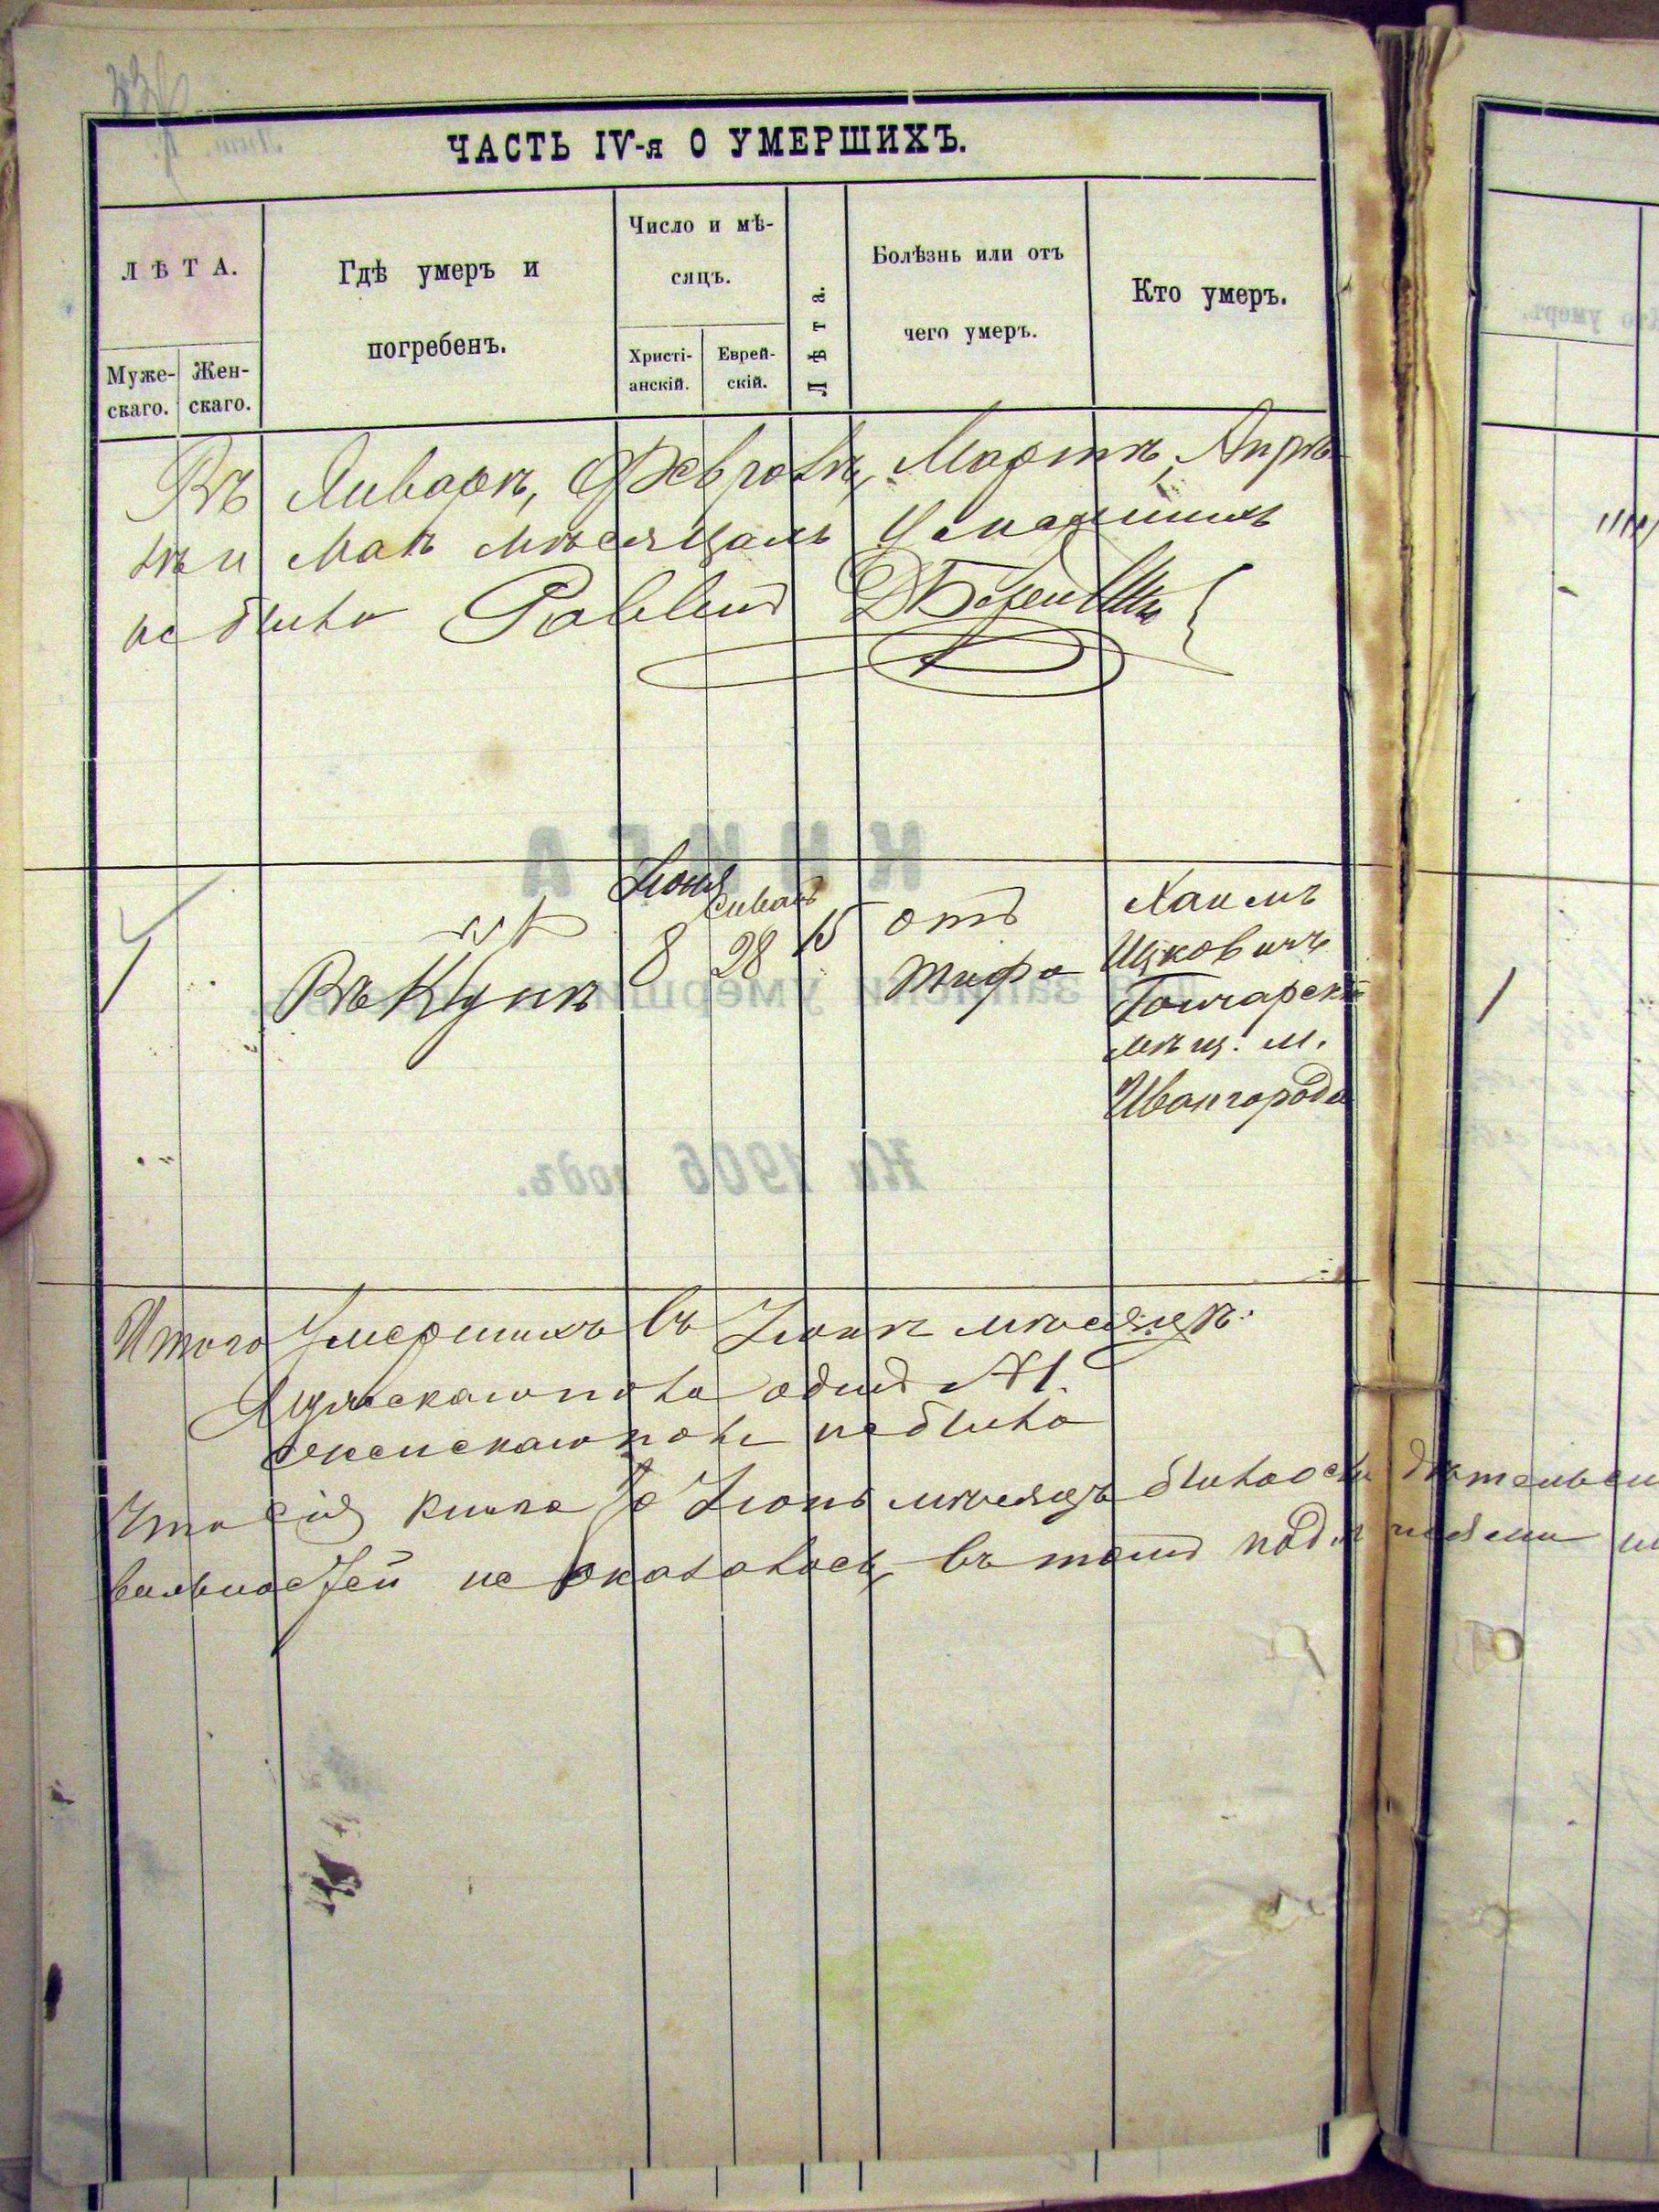 ЧАСТЬ IV-я О УМЕРШИХЪ.
ЛѢТА.
Муже-
скаго.
Жен-
скаго.
Гдѣ умеръ и
погребенъ.
Число и мѣ-
сяцъ.
Христі-
анскій.
Еврей-
скій.
Лѣта.
Болѣзнь или отъ
чего умеръ.
Кто умеръ.
Въ Январѣ, Февралѣ, Мартѣ, Апрѣ
лѣ и Маѣ мѣсяцахъ Умершихъ
не было Раввинъ
1
Въ Купѣ
Іюня
8
Сивана
28
15
отъ
тифа
Хаимъ
Ицковичъ
Гончарскій
мѣщ. м.
Ивангорода
1
КНИГА
записки умерши
На 1906 годъ.
Итого Умершихъ въ Іюнѣ мѣсяцѣ:
Мужескаго пола одинъ №1.
женскаго пола не было
Что сія книга за Іюнь мѣсяцъ была
не оказалось, въ томъ